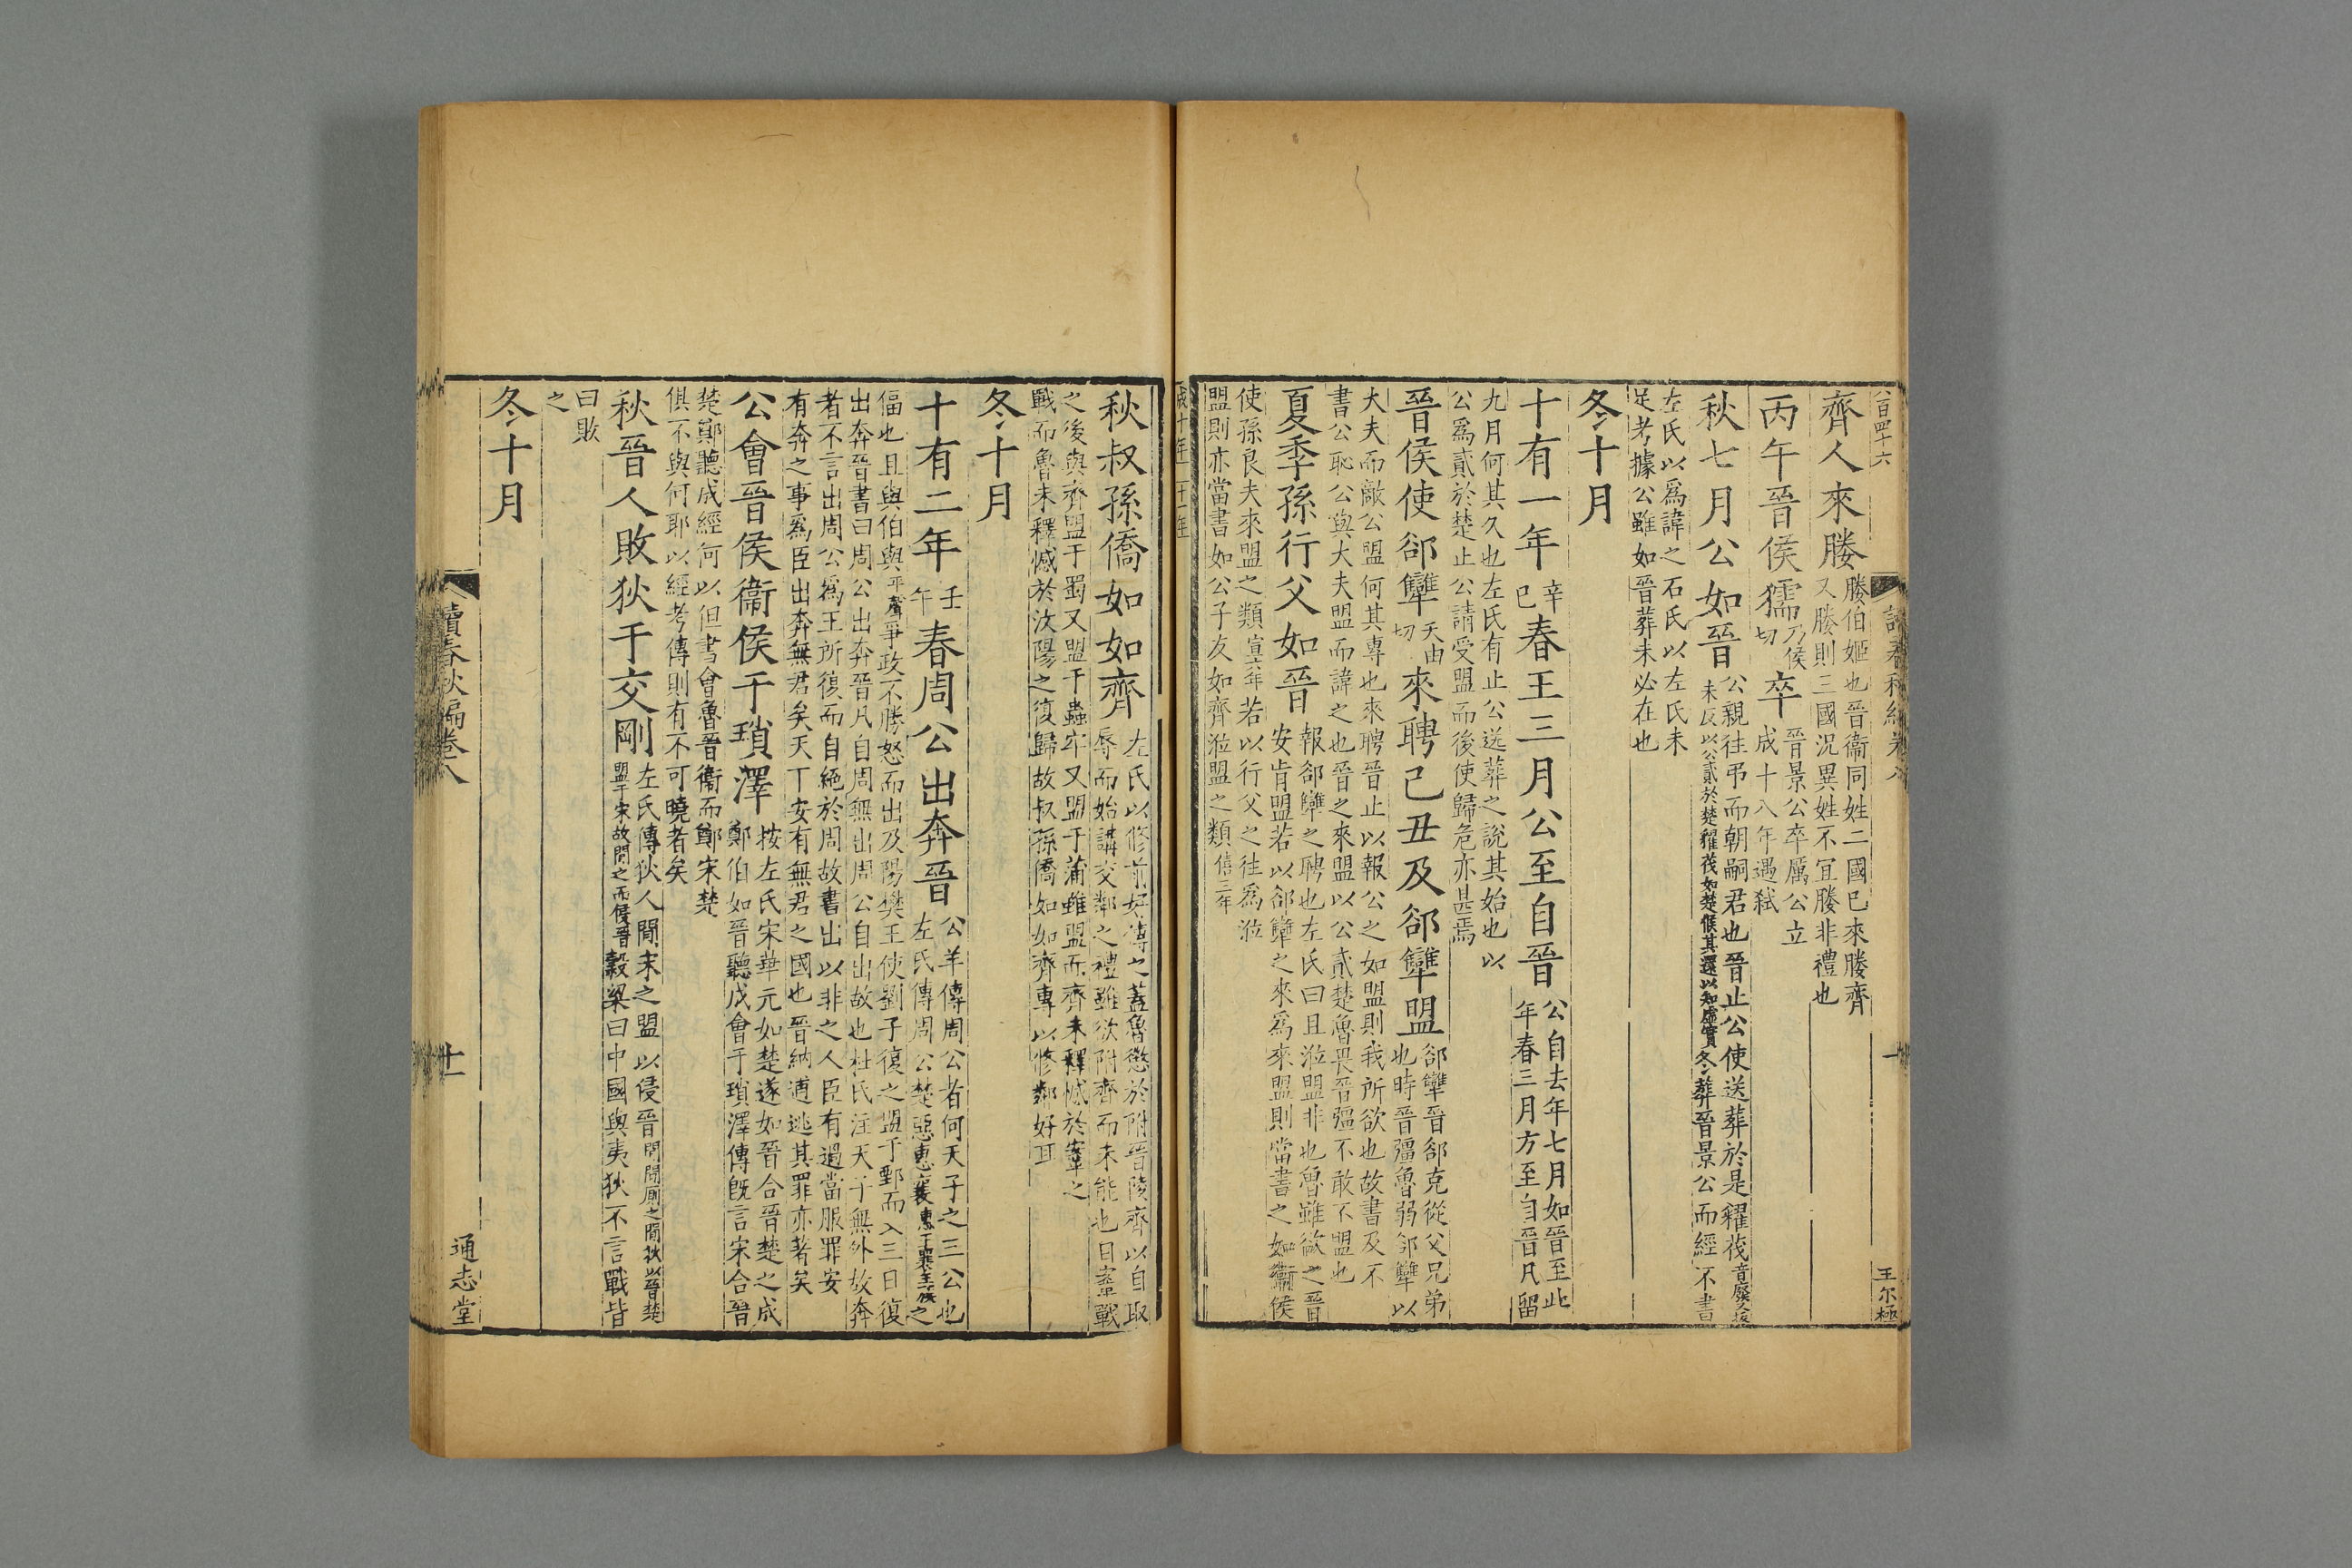 八百四十六
讀春秋編卷八
王尔極
齊人來媵
媵伯姬也晉衞同姓二國巳來媵齊
又媵則三國况異姓不宜媵非禮也
丙午晉侯獳乃侯切卒
晉景公卒厲公立
成十八年遇弑
秋七月公如晉
公親往弔而朝嗣君也晉止公使送葬於是糴茷音廢又扶
未反以公貳於楚糴茷如楚候其還以知虛實冬葬晉景公而經不書
左氏以爲諱之石氏以左氏未
足考據公雖如晉葬未必在也
冬十月
十有一年辛巳春王三月公至自晉
公自去年七月如晉至此
年春三月方至自晉凡留
九月何其久也左氏有止公送葬之說其始也以
公爲貳於楚止公請受盟而後使歸危亦甚焉
晉侯使郤犨天由切來聘己丑及郤犨盟
郤犨晉郤克從父兄弟
也時晉彊魯弱郤犨以
大夫而敵公盟何其專也來聘晉止以報公之如盟則我所欲也故書及不
書公恥公與大夫盟而諱之也晉之來盟以公貳楚魯畏晉彊不敢不盟也
夏季孫行父如晉
報郤犨之聘也左氏曰且涖盟非也魯雖欲之晉
安肯盟若以郤犨之來爲來盟則當書之如衞侯
使孫良夫來盟之類宣六年若以行父之往爲涖
盟則亦當書如公子友如齊涖盟之類僖三年
成十年 十一年
秋叔孫僑如如齊
左氏以修前好傳之蓋魯懲於附晉陵齊以自取
辱而始講交鄰之禮雖欲附齊而未能也曰鞌戰
之後與齊盟于蜀又盟于蟲牢又盟于蒲雖盟而齊未釋憾於鞌之
戰而魯未釋憾於汶陽之復歸故叔孫僑如如齊專以修鄰好耳
冬十月
十有二年壬午春周公出奔晉
公羊傳周公者何天子之三公也
左氏傳周公楚惡惠襄惠王襄王族之
偪也且與伯與平聲爭政不勝怒而出及陽樊王使劉子復之盟于鄄而入三日復
出奔晉書曰周公出奔晉凡自周無出周公自出故也杜氏注天子無外故奔
者不言出周公爲王所復而自絕於周故書出以非之人臣有過當服罪安
有奔之事爲臣出奔無君矣天下安有無君之國也晉納逋逃其罪亦著矣
公會晉侯衞侯于瑣澤
按左氏宋華元如楚遂如晉合晉楚之成
鄭伯如晉聽成會于瑣澤傳既言宋合晉
楚鄭聽成經何以但書會魯晉衞而鄭宋楚
俱不與何耶以經考傳則有不可曉者矣
秋晉人敗狄于交剛
左氏傳狄人間宋之盟以侵晉間間厠之間狄以晉楚
盟于宋故間之而侵晉穀梁曰中國與夷狄不言戰皆
曰敗
之
冬十月
讀春秋編卷八
十一
通志堂